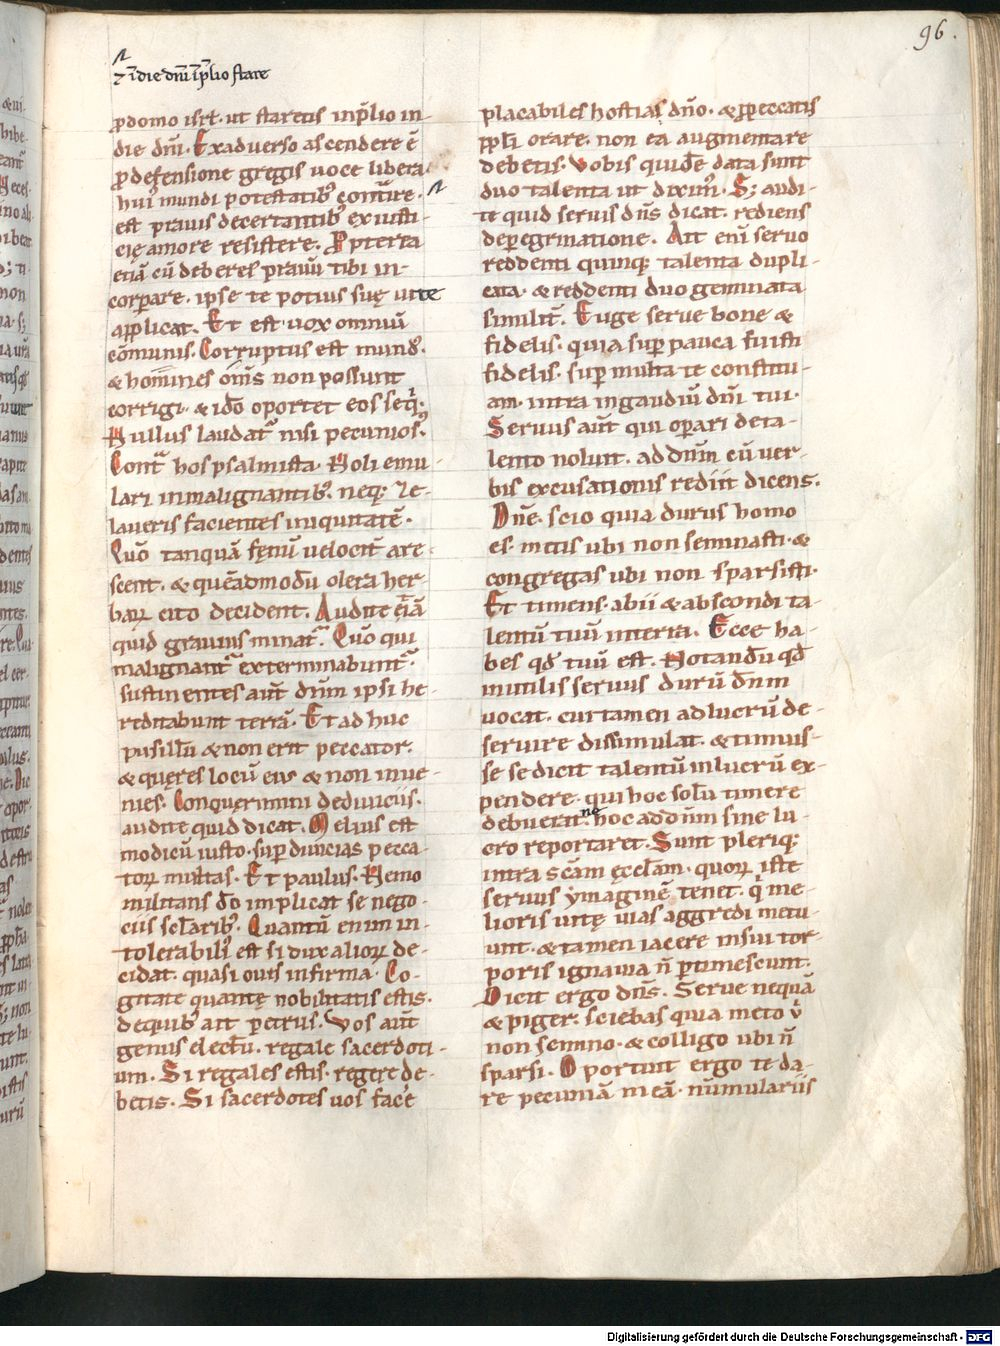 96.
⁊ ī die dn̄i ī p̄lio stare
ꝓdomo isrl̄. ut staretis inp̄lio in-
die dn̄i. Exaduerso ascendere ē
ꝓ defensione gregis uoce libera
hui᷒ mundi potestatib᷒ cont̄ire.
est prauis decertantib᷒ exiusti-
cię amore resistere. Ꝓpterea
etiā cū deberes prauū tibi in-
corꝑare. ipse te potius suę uite
applicat. Et est uox omniū
cōmunis. Corruptus est mund᷒.
& homines om̄s non possunt
corrigi. & idō oportet eos seq̇᷒.
Nullus laudat᷒ nisi pecunios᷒.
Contᷓ hos psalmista. Noli emu-
lari inmalignantib᷒. neq; ze-
laueris facientes iniquitatē.
Quō tanquā fęnū uelocit̄ are-
scent. & quēadmodū olera her-
barꝝ cito decident. Audite eīā
quid grauius minat᷒. Quō qui
malignant᷒ exterminabunt᷒.
sustinentes aut̄ dnm̄ ipsi he-
reditabunt terrā. Et ad huc
pusillū & non erit peccator.
& quęres locū eius & non inue-
nies. Conquerimini dediuiciis.
audite quid dicat. Melius est
modicū iusto. suꝑ diuicias pecca-
torꝝ multas. Et paulus. Nemo
militans dō implicat se nego-
ciis sclarib᷒. Quantū enim in-
tolerabili᷒ est si dux aliorꝝ de-
cidat. quasi ouis infirma. Co-
gitate quantę nobilitatis estis.
dequib᷒ ait petrus. Vos aut̄
genus electū. regale sacerdoti-
um. Si regales estis. regere de-
betis. Si sacerdotes uos facē
placabiles hostias dn̄o. & ꝓpeccatis
ppl̄i orare. non ea augmentare
debetis. Vobis quidē data sunt
duo talenta ut dixim᷒. S; audi-
te quid seruis dn̄s dicat. rediens
deꝑegrinatione. Ait eni seruo
reddenti quinq; talenta dupli-
cata. & reddenti duo geminata
similit̄. Euge serue bone &
fidelis. quia suꝑ pauca fuisti
fidelis. suꝑ multa te constitu-
am. intra ingaudiū dn̄i tui.
Seruus aut̄ qui oꝑari deta-
lento noluit. ad dnm̄ cū uer-
bis excusationis rediit dicens.
Dn̄e. scio quia durus homo
es. metis ubi non seminasti. &
congregas ubi non sparsisti.
Et timens. abii & abscondi ta-
lentū tuū interra. Ecce ha-
bes qd̄ tuū est. Notandū qd̄
inutilis seruus durū dnm̄
uocat. cui tamen ad lucrū de-
seruire dissimulat. & timuis-
se se dicit talentū inlucrū ex-
pendere. qui hoc solū timere
debuerit. ne hoc ad dnm̄ sine lu-
cro reportaret. Sunt pleriq;
intra scām ęcclam̄. quorꝝ iste
seruus ymaginē tenet. q̇ me-
lioris uitę uias aggredi metu-
unt. & tamen iacere insui tor-
poris ignauia n̄ ꝑtimescunt.
Dicit ergo dn̄s. Serue nequā
& piger. sciebas quia meto v̇
non semino. & colligo ubi n̄
sparsi. Oportuit ergo te da-
re pecuniā meā. nūmulariis
Digitalisierung gefördert durch die Deutsche Forschungsgemeinschaft - DFG